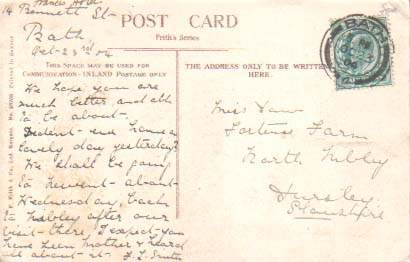 Francis Hotel
14 Bennett St
Bath,
Oct 23rd 04
POST CARD
Frith's Series
THIS SPACE MAY BE USED FOR
COMMUNICATION - INLAND POSTAGE ONLY
THE ADDRESS ONLY TO BE WRITTEN
HERE.
We hope you are
much better and able
to be about.
we have a
lovely day yesterday?
We shall be going
to about
Wednesday, back
to Nibley after our
visit there, I expect you
have seen Mother & heard
all about it. Smith
Miss
Farm
North Nibley
Dursley
BATH